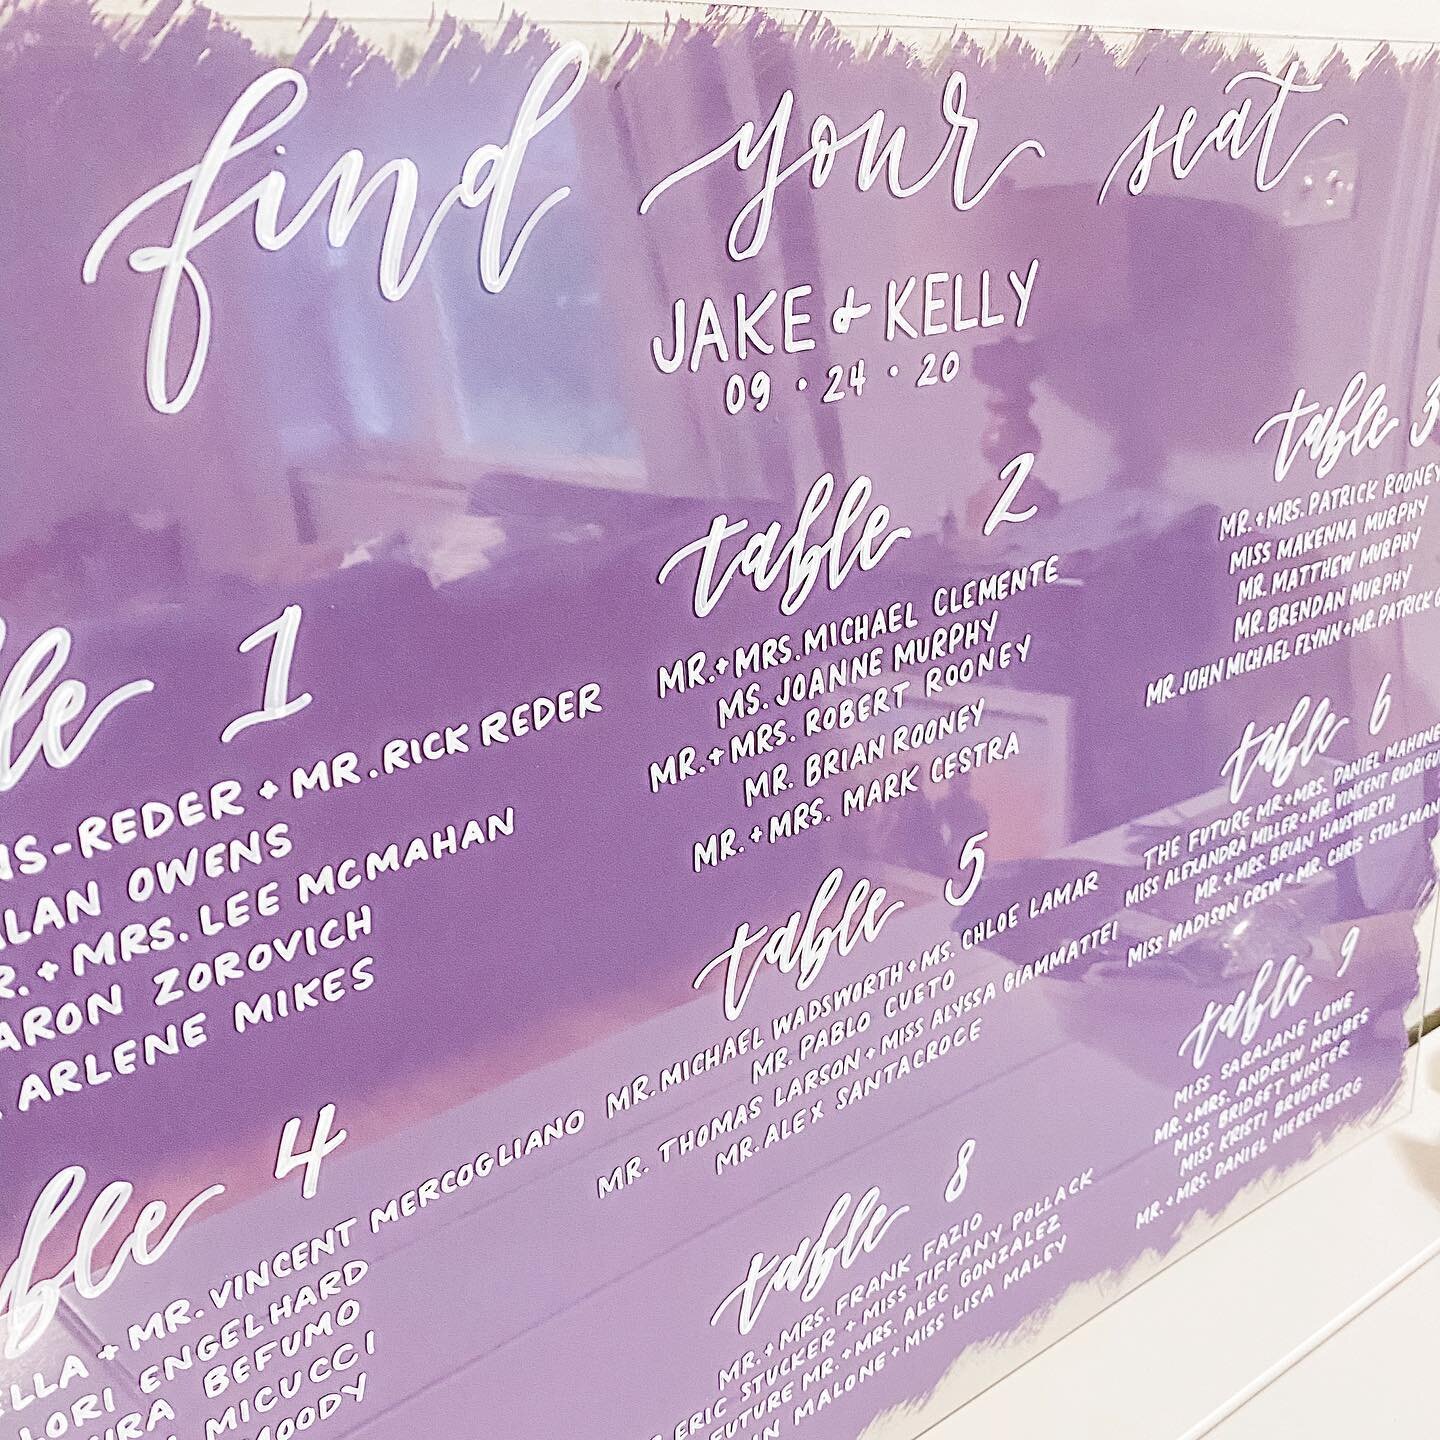 find your seat
JAKE & KELLY
09 • 24 • 20
1
-REDER + MR. RICK REDER
OWENS
+ MRS. LEE MCMAHAN
ZOROVICH
ARLENE MIKES
table 2
MR. + MRS. MICHAEL CLEMENTE
MS. JOANNE MURPHY
MR. + MRS. ROBERT ROONEY
MR. BRIAN ROONEY
MR. + MRS. MARK CESTRA
table 3
MR. + MRS. PATRICK ROONEY
MISS MAKENNA MURPHY
MR. MATTHEW MURPHY
MR. BRENDAN MURPHY
MR. JOHN MICHAEL FLYNN + MR. PATRICK
4
+ MR. VINCENT MERCOGLIANO
LORI ENGELHARD
BEFUMO
MICUCCI
MOODY
table 5
MR. MICHAEL WADSWORTH + MS. CHLOE LAMAR
MR. PABLO CUETO
MR. THOMAS LARSON + MISS ALYSSA GIAMMATTEI
MR. ALEX SANTACROCE
table 6
THE FUTURE MR + MRS. DANIEL MAHONE
MISS ALEXANDRA MILLER + MR. VINCENT
MR. + MRS. BRIAN HAUSWIRTH
MISS MADISON CREW + MR. CHRIS STOLZMAN
table 8
MR. + MRS. FRANK FAZIO
ERIC STUCKER + MISS TIFFANY POLLACK
FUTURE MR. + MRS. ALEC GONZALEZ
MALONE + MISS LISA MALEY
table 9
MISS SARAJANE LOWE
MR. + MRS. ANDREW HRUBES
MISS BRIDGET WINTER
MISS KRISTI BRUDER
MR. + MRS. DANIEL NIERENBERG